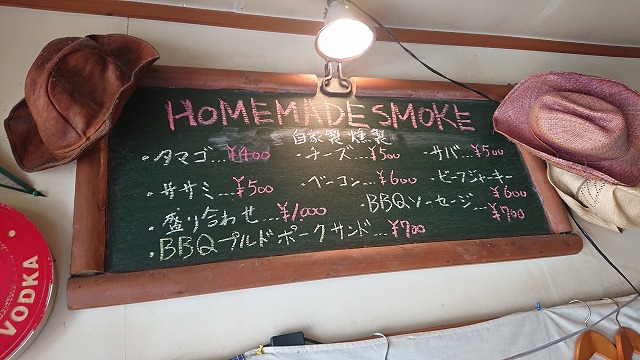 HOMEMADE SMOKE
自家製 燻製
・タマゴ…¥400 ・チーズ…¥500 ・サバ…¥500
・ササミ…¥500 ・ベーコン…¥600 ・ビーフジャーキー
¥600
・盛り合わせ…¥1,000 ・BBQソーセージ…¥700
・BBQプルドポークサンド…¥700
VODKA